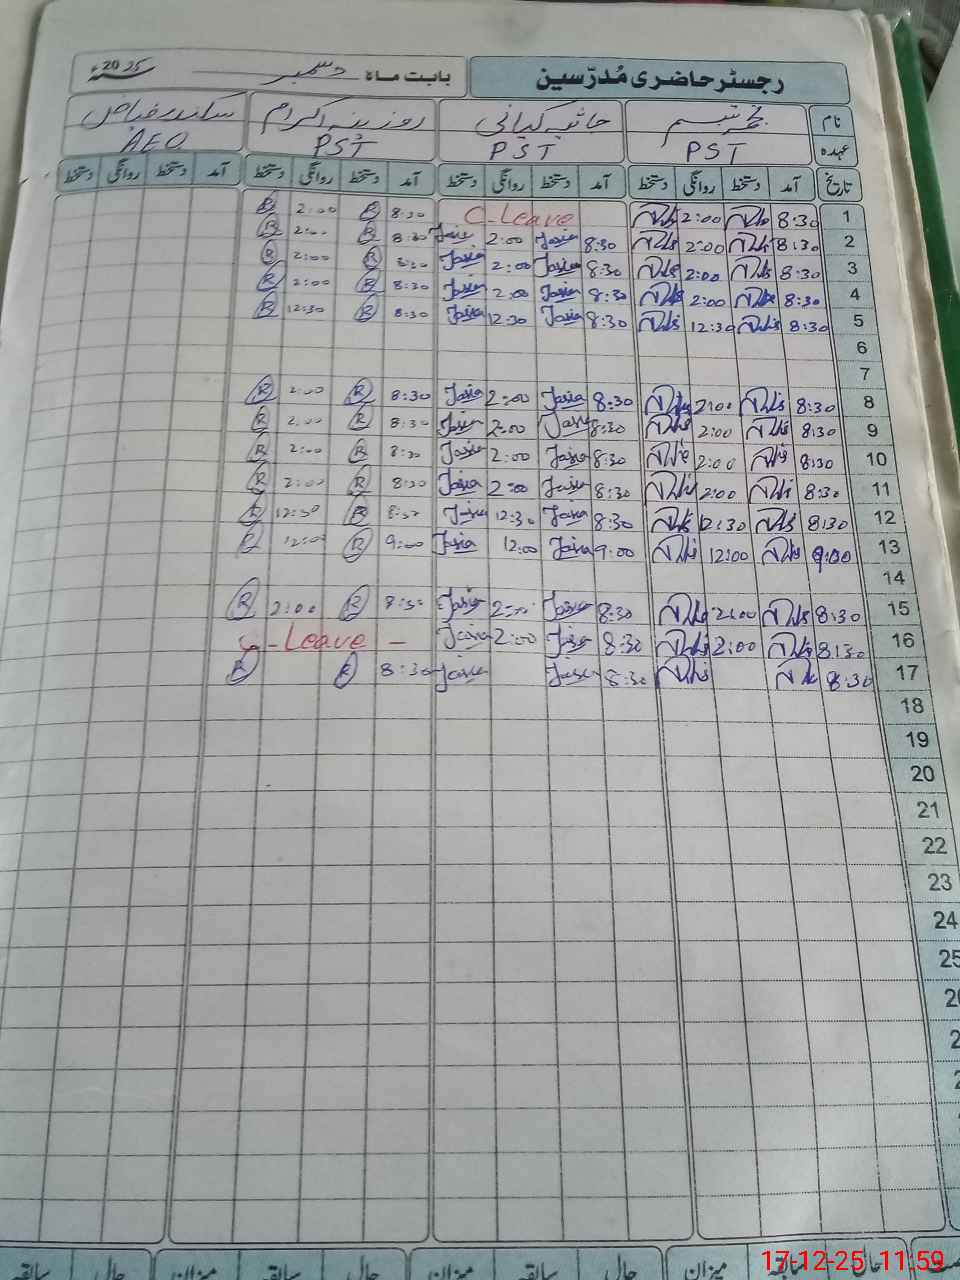 رجسٹر حاضری مُدرّسین بابت ماہ دسمبر سنہ 2025ء
نام نجمہ تبسم جاثیہ کیانی روزینہ اکرام سکندر فیاض
عہدہ PST PST PST AEO
تاریخ آمد دستخط روانگی دستخط آمد دستخط روانگی دستخط آمد دستخط روانگی دستخط آمد دستخط روانگی دستخط
1 8:30 2:00 C-Leave 8:30 R 2:00 R
2 8:30 2:00 8:30 Jasia 2:00 Jasia 8:30 R 2:00 R
3 8:30 2:00 8:30 Jasia 2:00 Jasia 8:30 R 2:00 R
4 8:30 2:00 8:30 Jasia 2:00 Jasia 8:30 R 2:00 R
5 8:30 12:30 8:30 Jasia 12:30 Jasia 8:30 R 12:30 R
6
7
8 8:30 2:00 8:30 Jasia 2:00 Jasia 8:30 R 2:00 R
9 8:30 2:00 8:30 Jasia 2:00 Jasia 8:30 R 2:00 R
10 8:30 2:00 8:30 Jasia 2:00 Jasia 8:30 R 2:00 R
11 8:30 2:00 8:30 Jasia 2:00 Jasia 8:30 R 2:00 R
12 8:30 12:30 8:30 Jasia 12:30 Jasia 8:30 R 12:30 R
13 9:00 12:00 9:00 Jasia 12:00 Jasia 9:00 R 12:00 R
14
15 8:30 2:00 8:30 Jasia 2:00 Jasia 8:30 R 2:00 R
16 8:30 2:00 8:30 Jasia 2:00 Jasia C-Leave -
17 8:30 8:30 Jasia Jasia 8:30 R R
18
19
20
21
22
23
24
25
میزان سابقہ حالی میزان سابقہ حالی میزان سابقہ حالی سابقہ
17-12-25 11.59